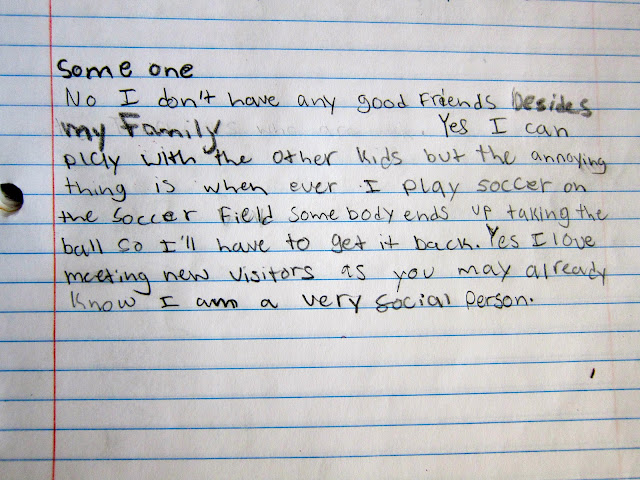 some one
No I don't have any good Friends Besides
my Family. Yes I can
play with the other kids but the annoying
thing is when ever I play soccer on
the soccer Field some body ends up taking the
ball so I'll have to get it back. Yes I love
meeting new visitors as you may already
know I am a very social person.